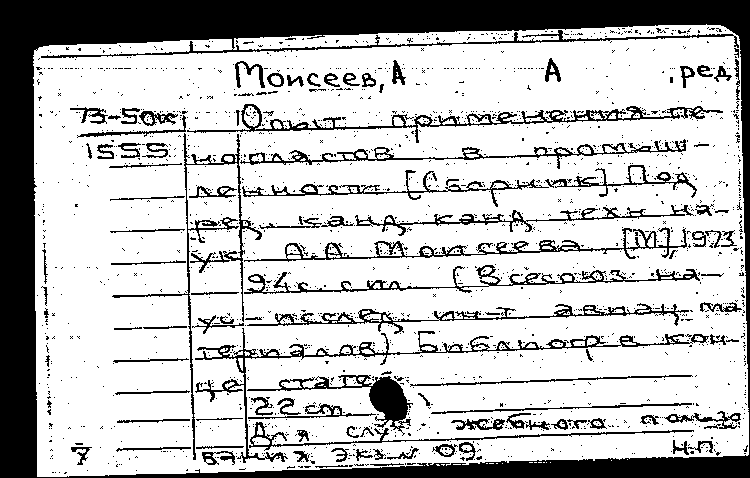 Моисеев, А А , ред
73-50ж Опыт применения пе-
1555 нопластов в промыш-
ленности [Сборник]. Под
ред. канд канд техн на-
ук А.А. Моисеева. [М], 1973.
94с. с ил. (Всесоюз на-
уч-исслед. ин-т авиац. ма
териалов) Библиогр в кон-
це статей
22 cm.
Для служебного пользо
вания. Экз.№ 09. Н.П.
7